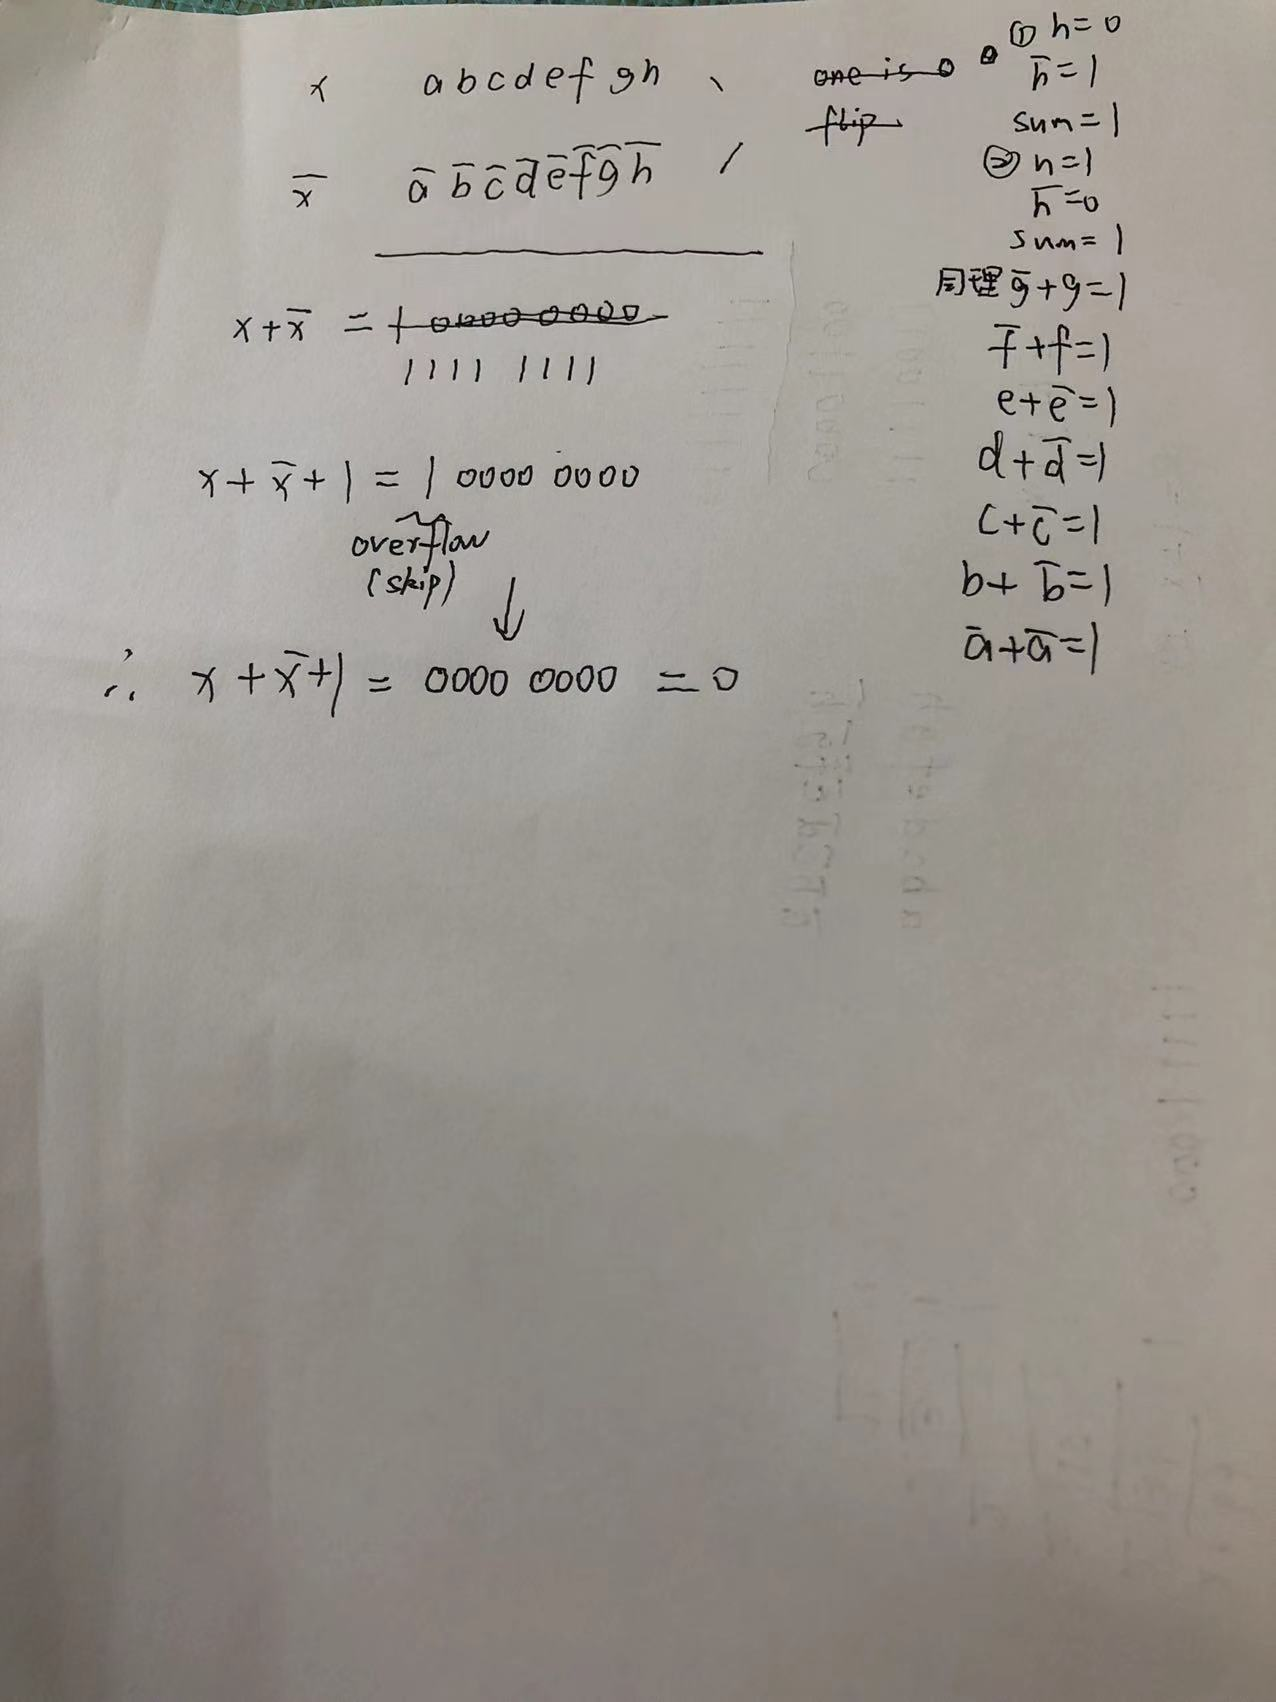 x abcdefgh
x̄ āb̄c̄d̄ēf̄ḡh̄
x+x̄ = 1 0000 0000
1111 1111
x+x̄+1 = 1 0000 0000
overflow
(skip)
∴ x+x̄+1 = 0000 0000 = 0
one is 0
flip
① h=0
h̄=1
sum=1
② h=1
h̄=0
sum=1
同理 ḡ+g=1
f̄+f=1
e+ē=1
d+d̄=1
c+c̄=1
b+b̄=1
ā+ā=1